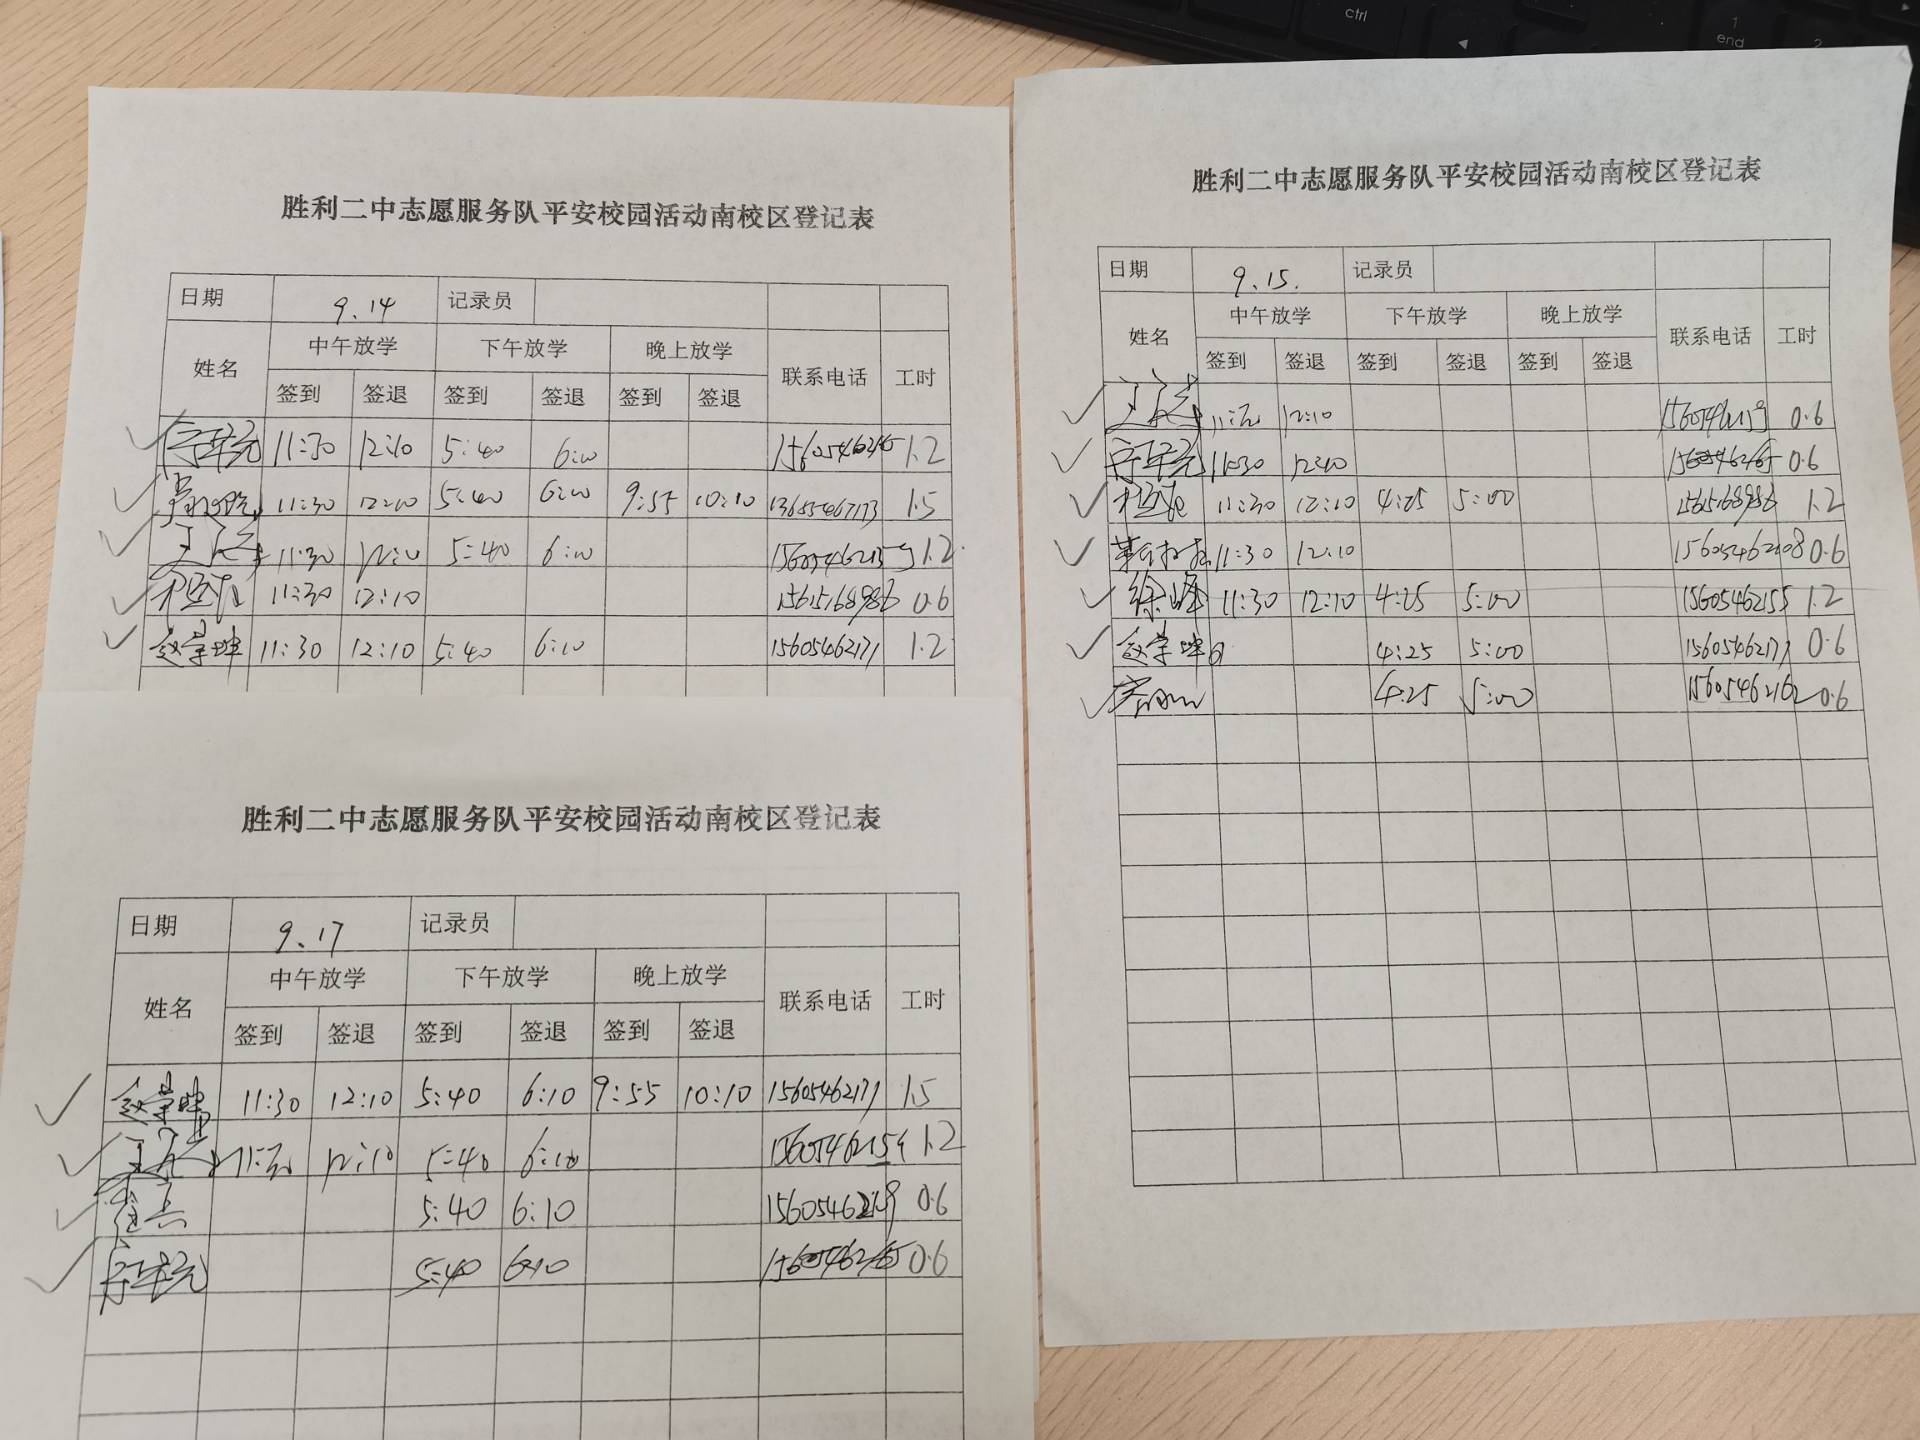 ctrl
1
end
2
胜利二中志愿服务队平安校园活动南校区登记表
日期 9.14 记录员
姓名 中午放学 下午放学 晚上放学 联系电话 工时
签到 签退 签到 签退 签到 签退
11:30 12:10 5:40 6:10 1.2
11:30 12:10 5:40 6:10 9:55 10:10 13655467173 1.5
11:30 12:10 5:40 6:10 15605462159 1.2
11:30 12:10 15615168986 0.6
赵学坤 11:30 12:10 5:40 6:10 15605462171 1.2
胜利二中志愿服务队平安校园活动南校区登记表
日期 9.17 记录员
姓名 中午放学 下午放学 晚上放学 联系电话 工时
签到 签退 签到 签退 签到 签退
赵学坤 11:30 12:10 5:40 6:10 9:55 10:10 15605462171 1.5
11:30 12:10 5:40 6:10 15605462159 1.2
5:40 6:10 0.6
5:40 6:10 0.6
胜利二中志愿服务队平安校园活动南校区登记表
日期 9.15. 记录员
姓名 中午放学 下午放学 晚上放学 联系电话 工时
签到 签退 签到 签退 签到 签退
11:30 12:10 0.6
11:30 12:10 0.6
11:30 12:10 4:25 5:00 15615168986 1.2
11:30 12:10 15605462108 0.6
徐峰 11:30 12:10 4:25 5:00 15605462155 1.2
赵学坤 4:25 5:00 15605462171 0.6
4:25 5:00 15605462162 0.6